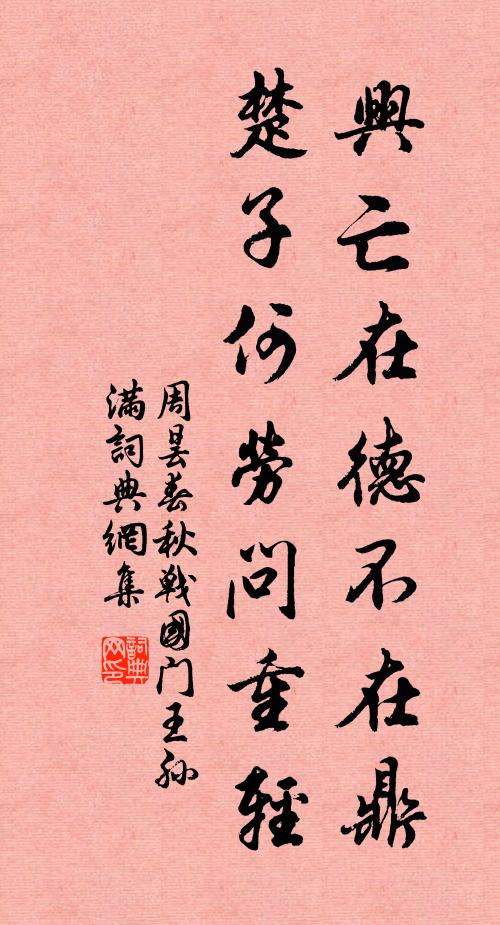 興亡在德不在鼎
楚子何勞問重輕
周昙春秋戰國门王孙
满詞典網集
詞典
网印